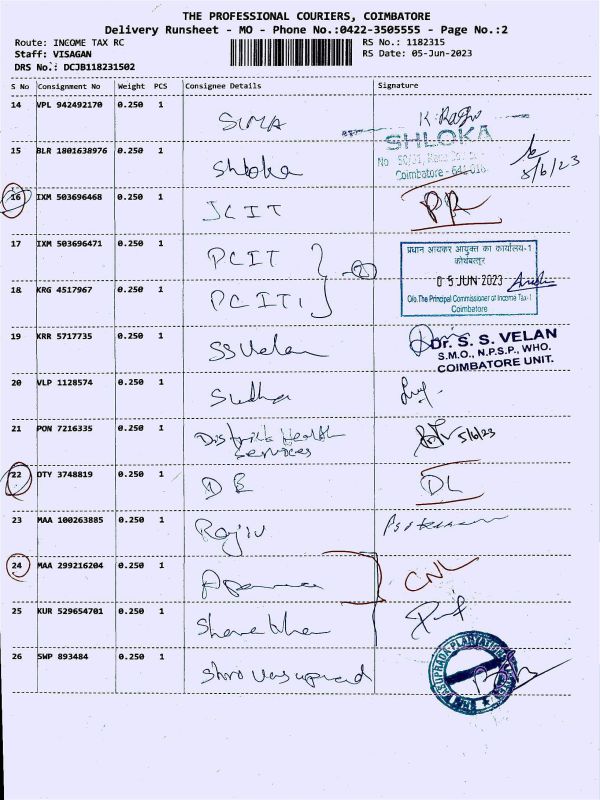 THE PROFESSIONAL COURIERS, COIMBATORE
Delivery Runsheet - MO - Phone No.:0422-3505555 - Page No.:2
Route: INCOME TAX RC RS No.: 1182315
Staff: VISAGAN RS Date: 05-Jun-2023
DRS No.: DCJB118231502
S No Consignment No Weight PCS Consignee Details Signature
14 VPL 942492170 0.250 1 SIMA
SHLOKA
15 BLR 1801638976 0.250 1 Shloka
Coimbatore - 641 018
5/6/23
16 IXM 503696468 0.250 1 JCIT PR
17 IXM 503696471 0.250 1 PCIT
प्रधान आयकर आयुक्त का कार्यालय-1
कोयंबत्तूर
05 JUN 2023
18 KRG 4517967 0.250 1 PCIT1
O/o.The Principal Commissioner of Income Tax-1
Coimbatore
19 KRR 5717735 0.250 1 SSVelan
Dr. S. S. VELAN
S.M.O., N.P.S.P., WHO.
COIMBATORE UNIT.
20 VLP 1128574 0.250 1 Sudha
21 PON 7216335 0.250 1 District Health
Services
5/6/23
22 OTY 3748819 0.250 1 DE DL
23 MAA 100263885 0.250 1 Rajiv
24 MAA 299216204 0.250 1 CNL
25 KUR 529654701 0.250 1 Sharekhan
26 SWP 893484 0.250 1 Shri Vasuprad